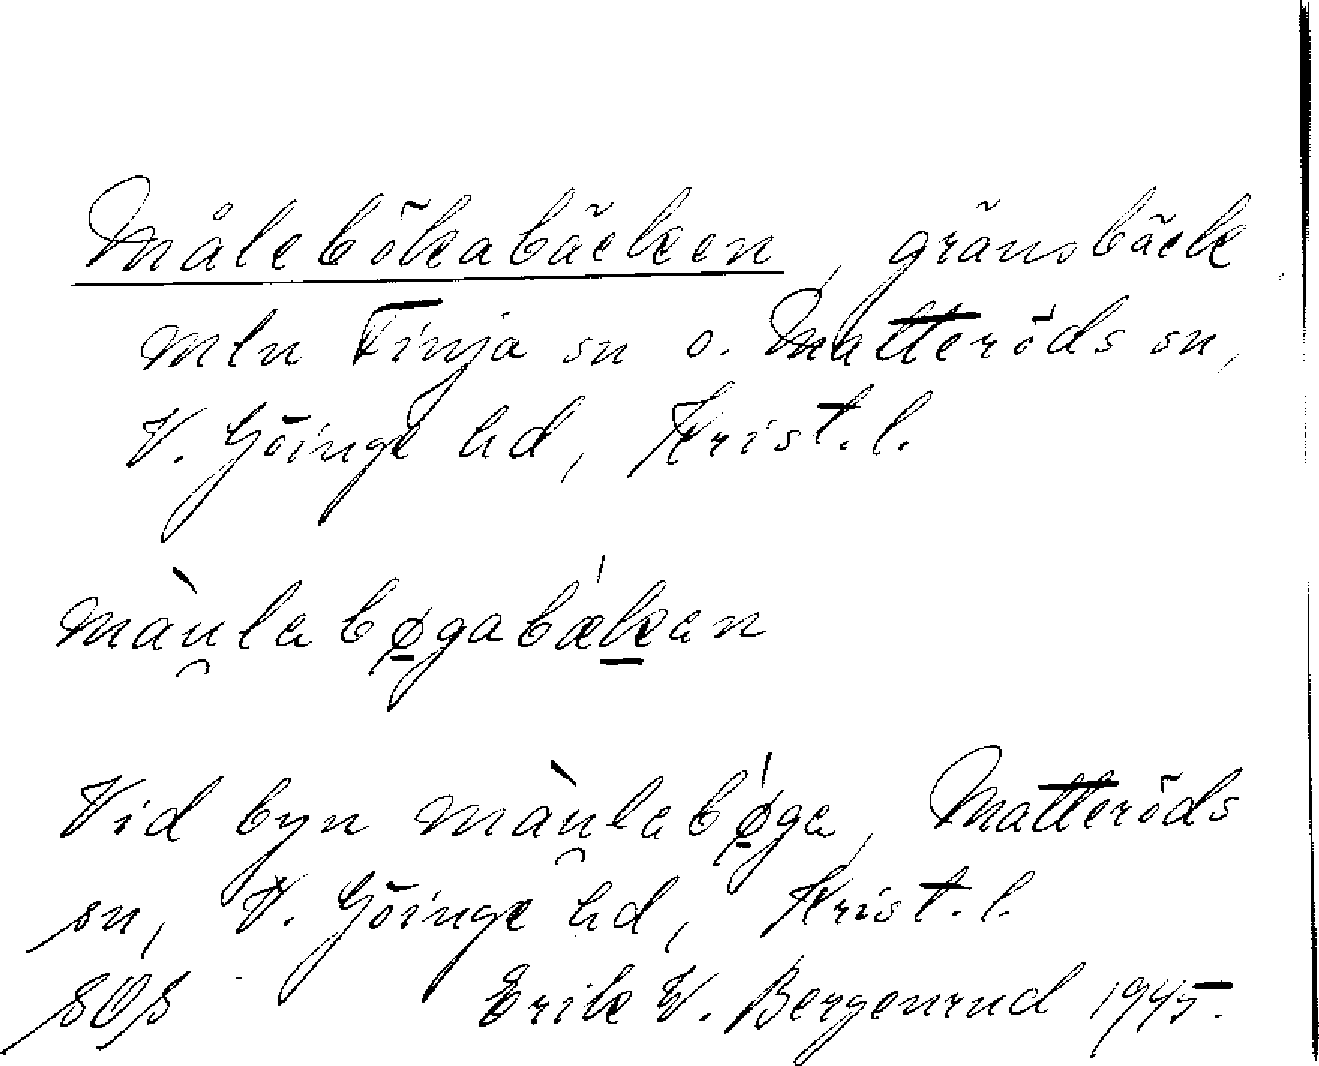 Målebökabäcken, gränsbäck
mln Finja sn o. Matteröds sn,
V. Göinge hd, Krist. l.
màu̯labø̠gabæ̍k̠an
Vid byn màu̯labø̠̍ga, Matteröds
sn, V. Göinge hd, Krist. l.
SOS Erik W. Bergenrud 1945.